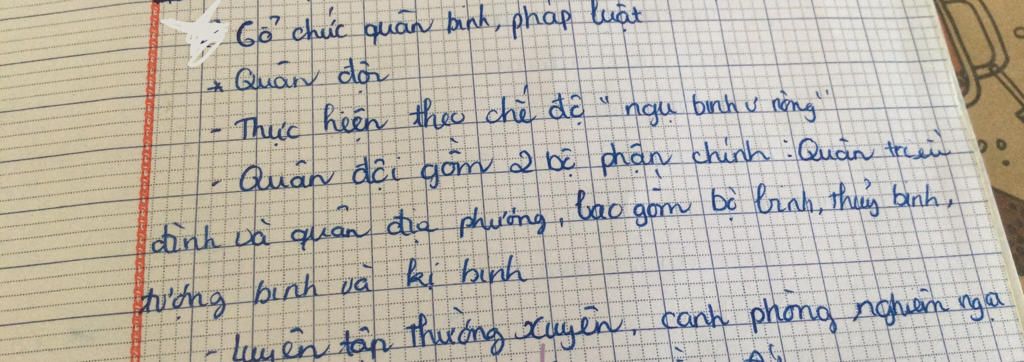 Gổ chức quân binh, pháp luật
* Quân đội
- Thực hiện theo chế độ "ngụ binh ư nông"
- Quân đội gồm 2 bộ phận chính: Quân triều
đình và quân địa phương, bao gồm bộ binh, thủy binh,
tượng binh và kị binh
- luyện tập thường xuyên, canh phòng nghiêm ngặ